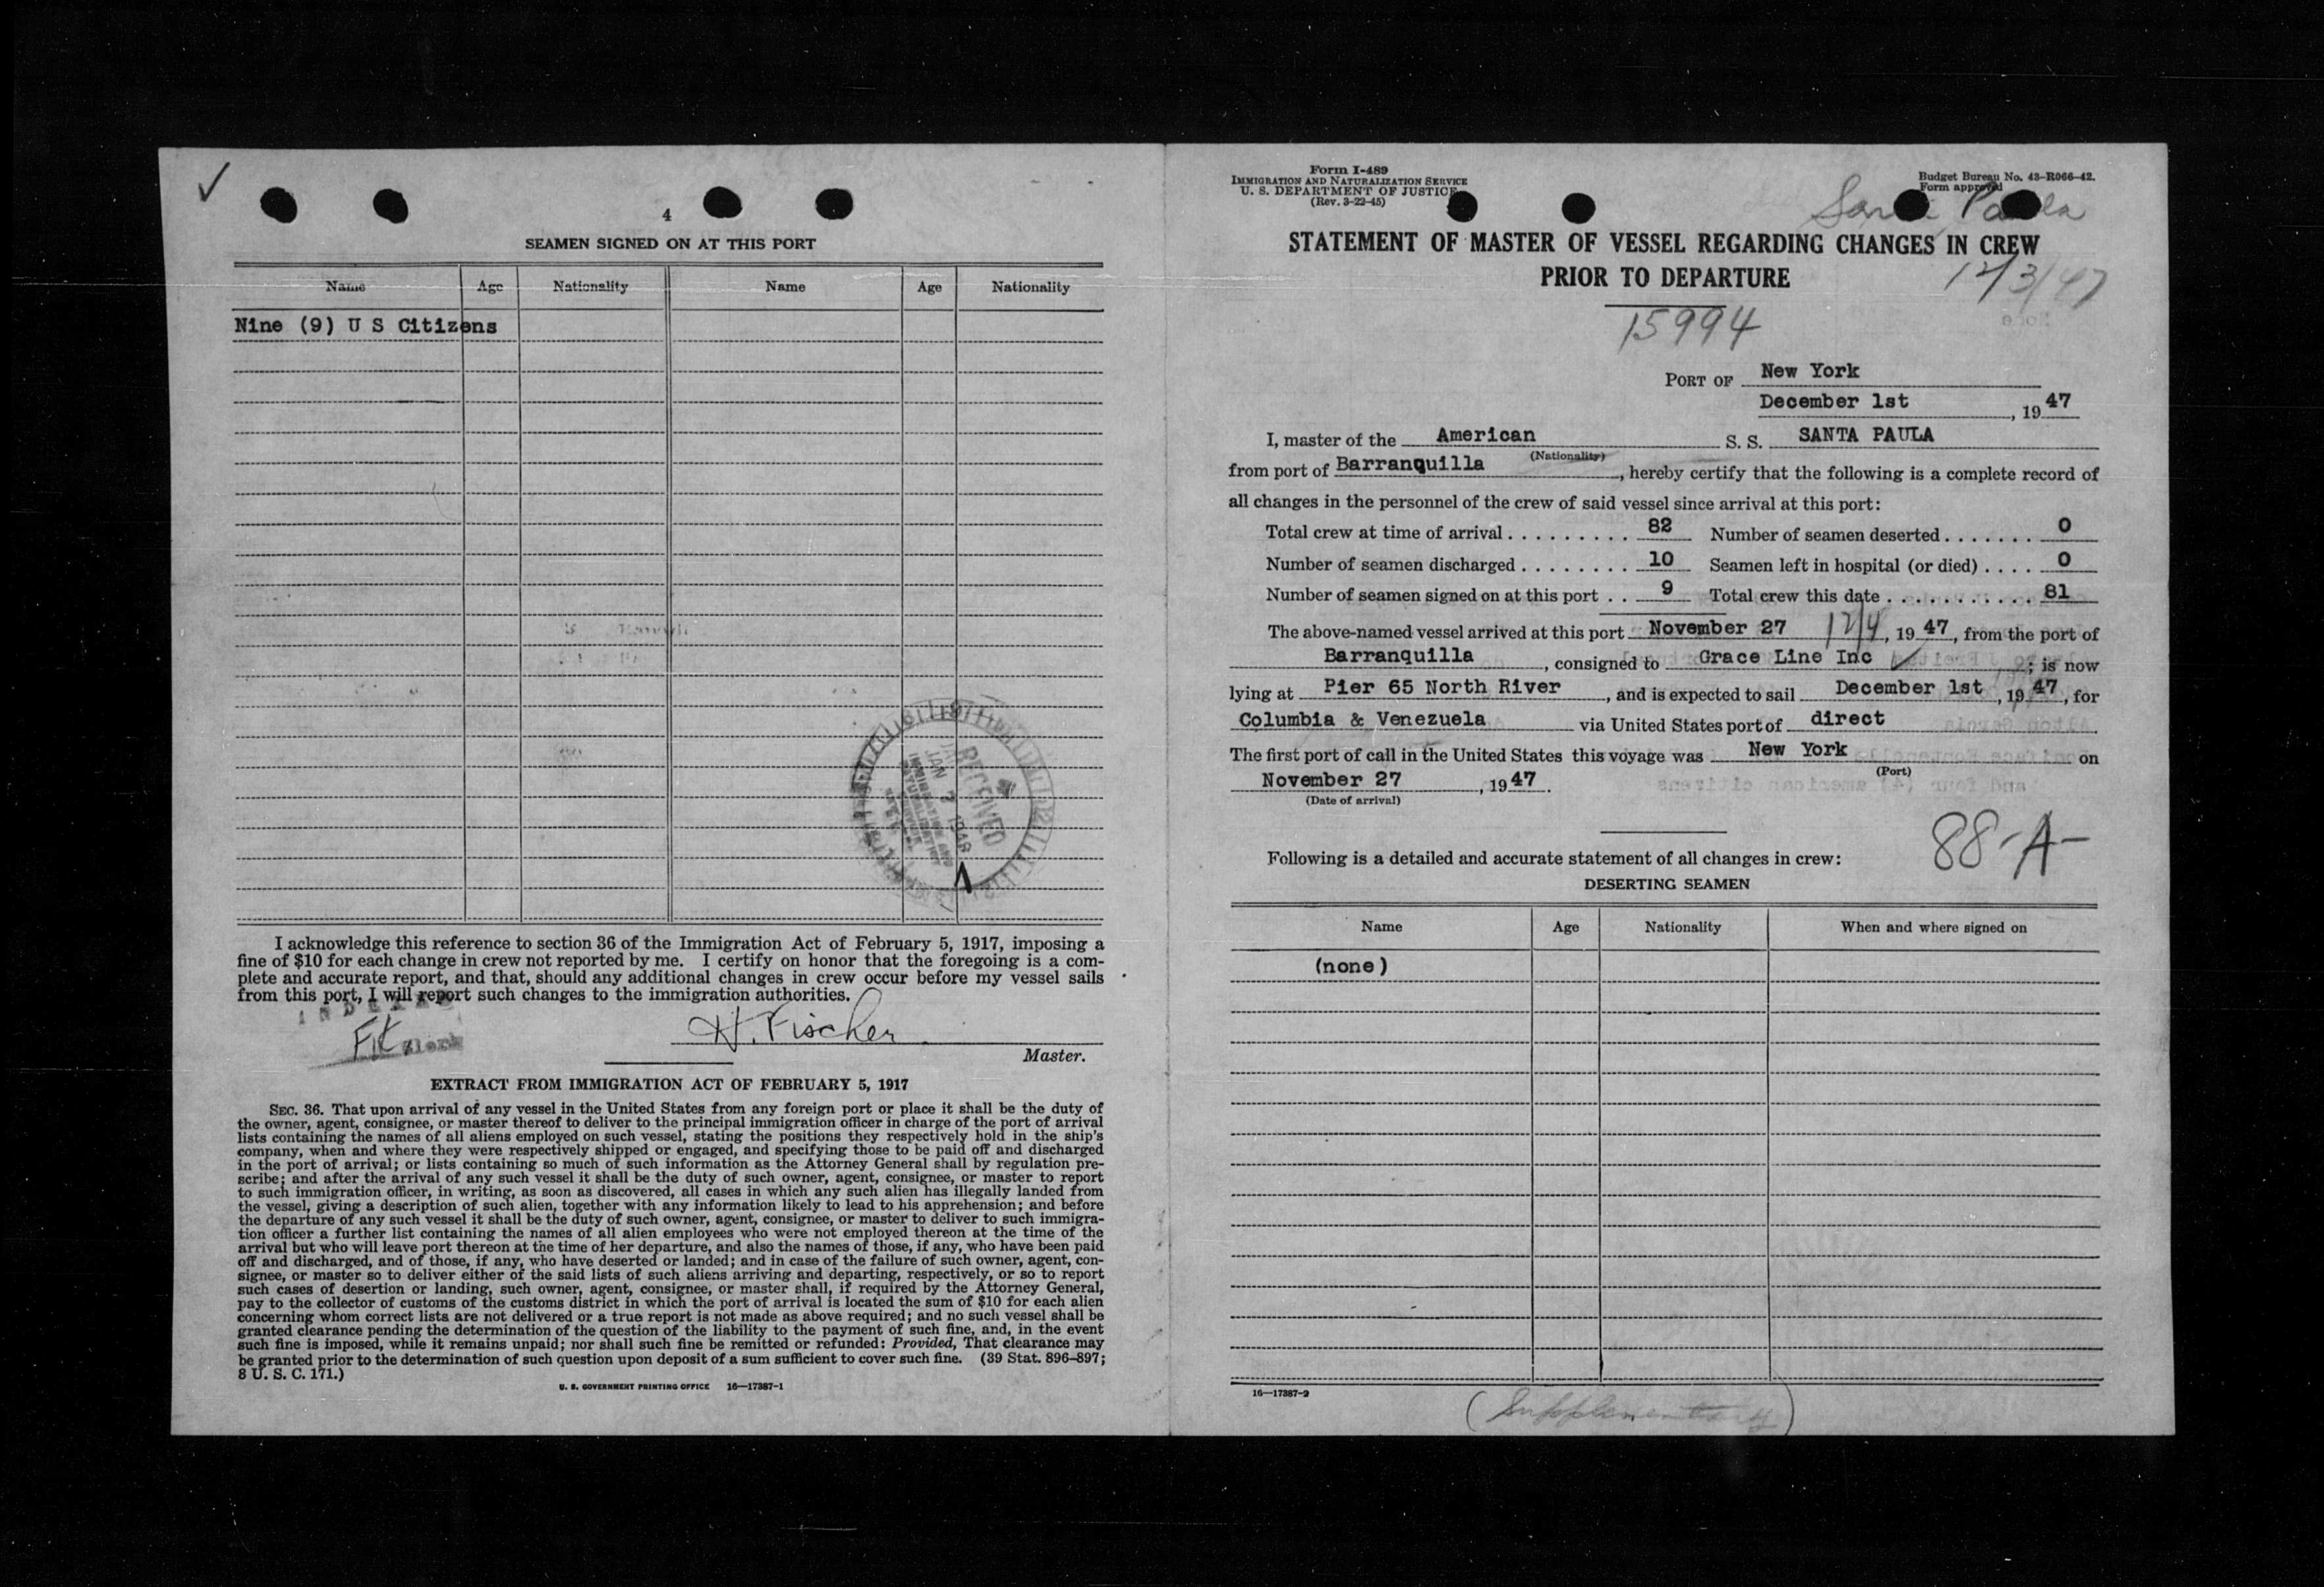 4
SEAMEN SIGNED ON AT THIS PORT
Name Age Nationality Name Age Nationality
Nine (9) U S Citizens
RECEIVED
JAN 2 1948
IMMIGRATION AND
NATURALIZATION
SERVICE
I acknowledge this reference to section 36 of the Immigration Act of February 5, 1917, imposing a
fine of $10 for each change in crew not reported by me. I certify on honor that the foregoing is a com-
plete and accurate report, and that, should any additional changes in crew occur before my vessel sails
from this port, I will report such changes to the immigration authorities.
INDEXED
Clerk
H. Fischer
Master.
EXTRACT FROM IMMIGRATION ACT OF FEBRUARY 5, 1917
SEC. 36. That upon arrival of any vessel in the United States from any foreign port or place it shall be the duty of
the owner, agent, consignee, or master thereof to deliver to the principal immigration officer in charge of the port of arrival
lists containing the names of all aliens employed on such vessel, stating the positions they respectively hold in the ship's
company, when and where they were respectively shipped or engaged, and specifying those to be paid off and discharged
in the port of arrival; or lists containing so much of such information as the Attorney General shall by regulation pre-
scribe; and after the arrival of any such vessel it shall be the duty of such owner, agent, consignee, or master to report
to such immigration officer, in writing, as soon as discovered, all cases in which any such alien has illegally landed from
the vessel, giving a description of such alien, together with any information likely to lead to his apprehension; and before
the departure of any such vessel it shall be the duty of such owner, agent, consignee, or master to deliver to such immigra-
tion officer a further list containing the names of all alien employees who were not employed thereon at the time of the
arrival but who will leave port thereon at the time of her departure, and also the names of those, if any, who have been paid
off and discharged, and of those, if any, who have deserted or landed; and in case of the failure of such owner, agent, con-
signee, or master so to deliver either of the said lists of such aliens arriving and departing, respectively, or so to report
such cases of desertion or landing, such owner, agent, consignee, or master shall, if required by the Attorney General,
pay to the collector of customs of the customs district in which the port of arrival is located the sum of $10 for each alien
concerning whom correct lists are not delivered or a true report is not made as above required; and no such vessel shall be
granted clearance pending the determination of the question of the liability to the payment of such fine, and, in the event
such fine is imposed, while it remains unpaid; nor shall such fine be remitted or refunded: Provided, That clearance may
be granted prior to the determination of such question upon deposit of a sum sufficient to cover such fine. (39 Stat. 896–897;
8 U. S. C. 171.)
U. S. GOVERNMENT PRINTING OFFICE 16—17387-1
Form I-489
IMMIGRATION AND NATURALIZATION SERVICE
U. S. DEPARTMENT OF JUSTICE
(Rev. 3-22-45)
Budget Bureau No. 43-R066-42.
Form approved
Santa Paula
STATEMENT OF MASTER OF VESSEL REGARDING CHANGES IN CREW
PRIOR TO DEPARTURE
12/3/47
15994
PORT OF New York
December 1st, 1947
I, master of the American S. S. SANTA PAULA
(Nationality)
from port of Barranquilla, hereby certify that the following is a complete record of
all changes in the personnel of the crew of said vessel since arrival at this port:
Total crew at time of arrival . . . . . . . . . 82 Number of seamen deserted . . . . . . . 0
Number of seamen discharged . . . . . . . . 10 Seamen left in hospital (or died) . . . . 0
Number of seamen signed on at this port . . 9 Total crew this date . . . . . . . . . . . 81
The above-named vessel arrived at this port November 27 12/4, 1947, from the port of
Barranquilla, consigned to Grace Line Inc ; is now
lying at Pier 65 North River, and is expected to sail December 1st, 1947, for
Columbia & Venezuela via United States port of direct
The first port of call in the United States this voyage was New York on
(Port)
November 27, 1947.
(Date of arrival)
88-A-
Following is a detailed and accurate statement of all changes in crew:
DESERTING SEAMEN
Name Age Nationality When and where signed on
(none)
16—17387-2
(Supplementary)